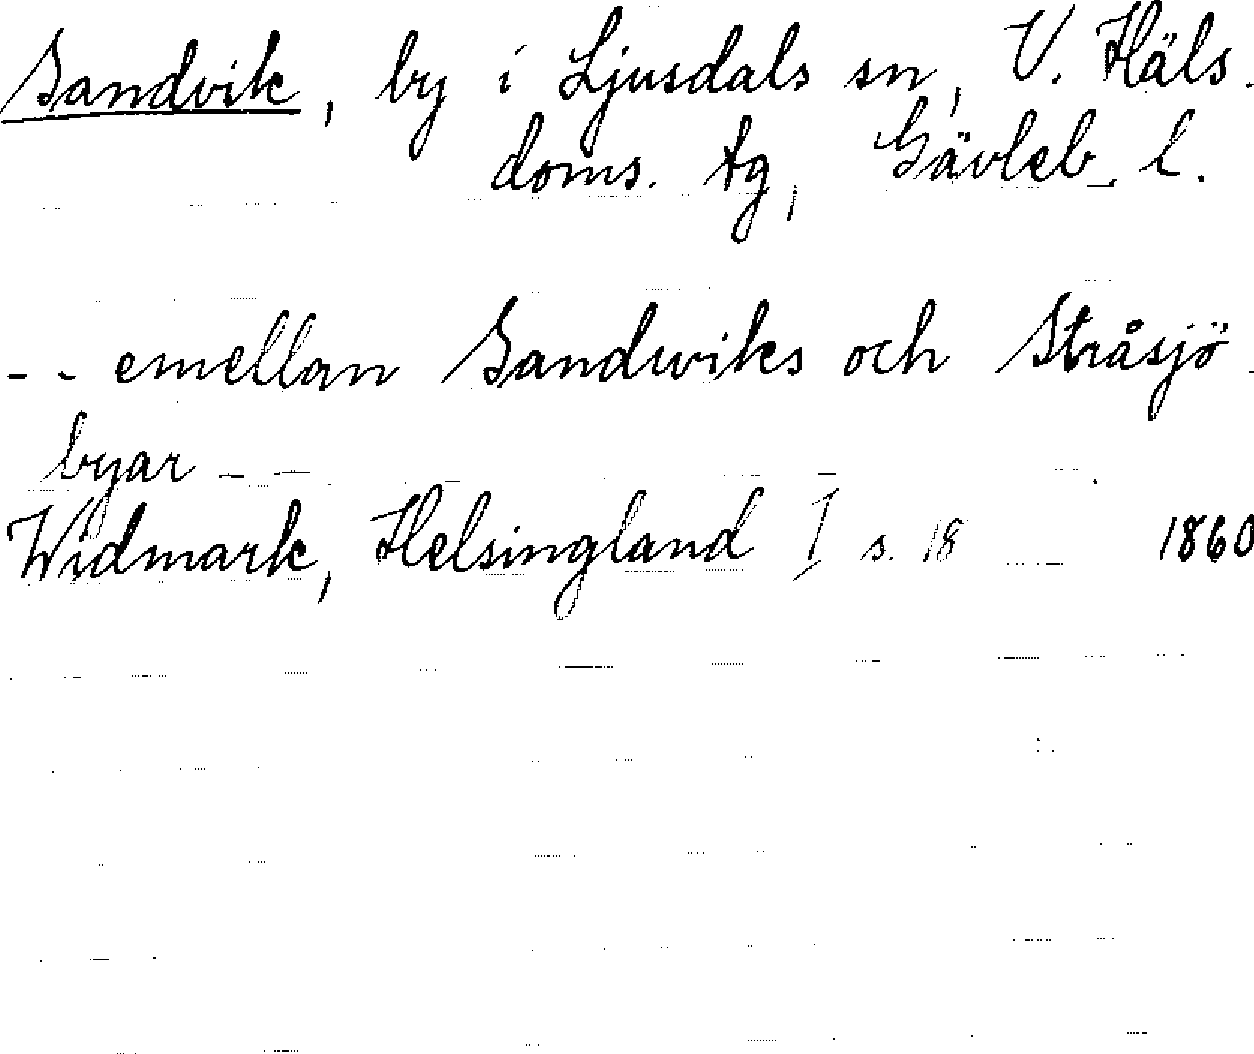 Sandvik, by i Ljusdals sn, V. Häls.
doms. tg, Gävleb. l.
-- emellan Sandwiks och Stråsjö
byar --
Widmark, Helsingland I s. 18 1860